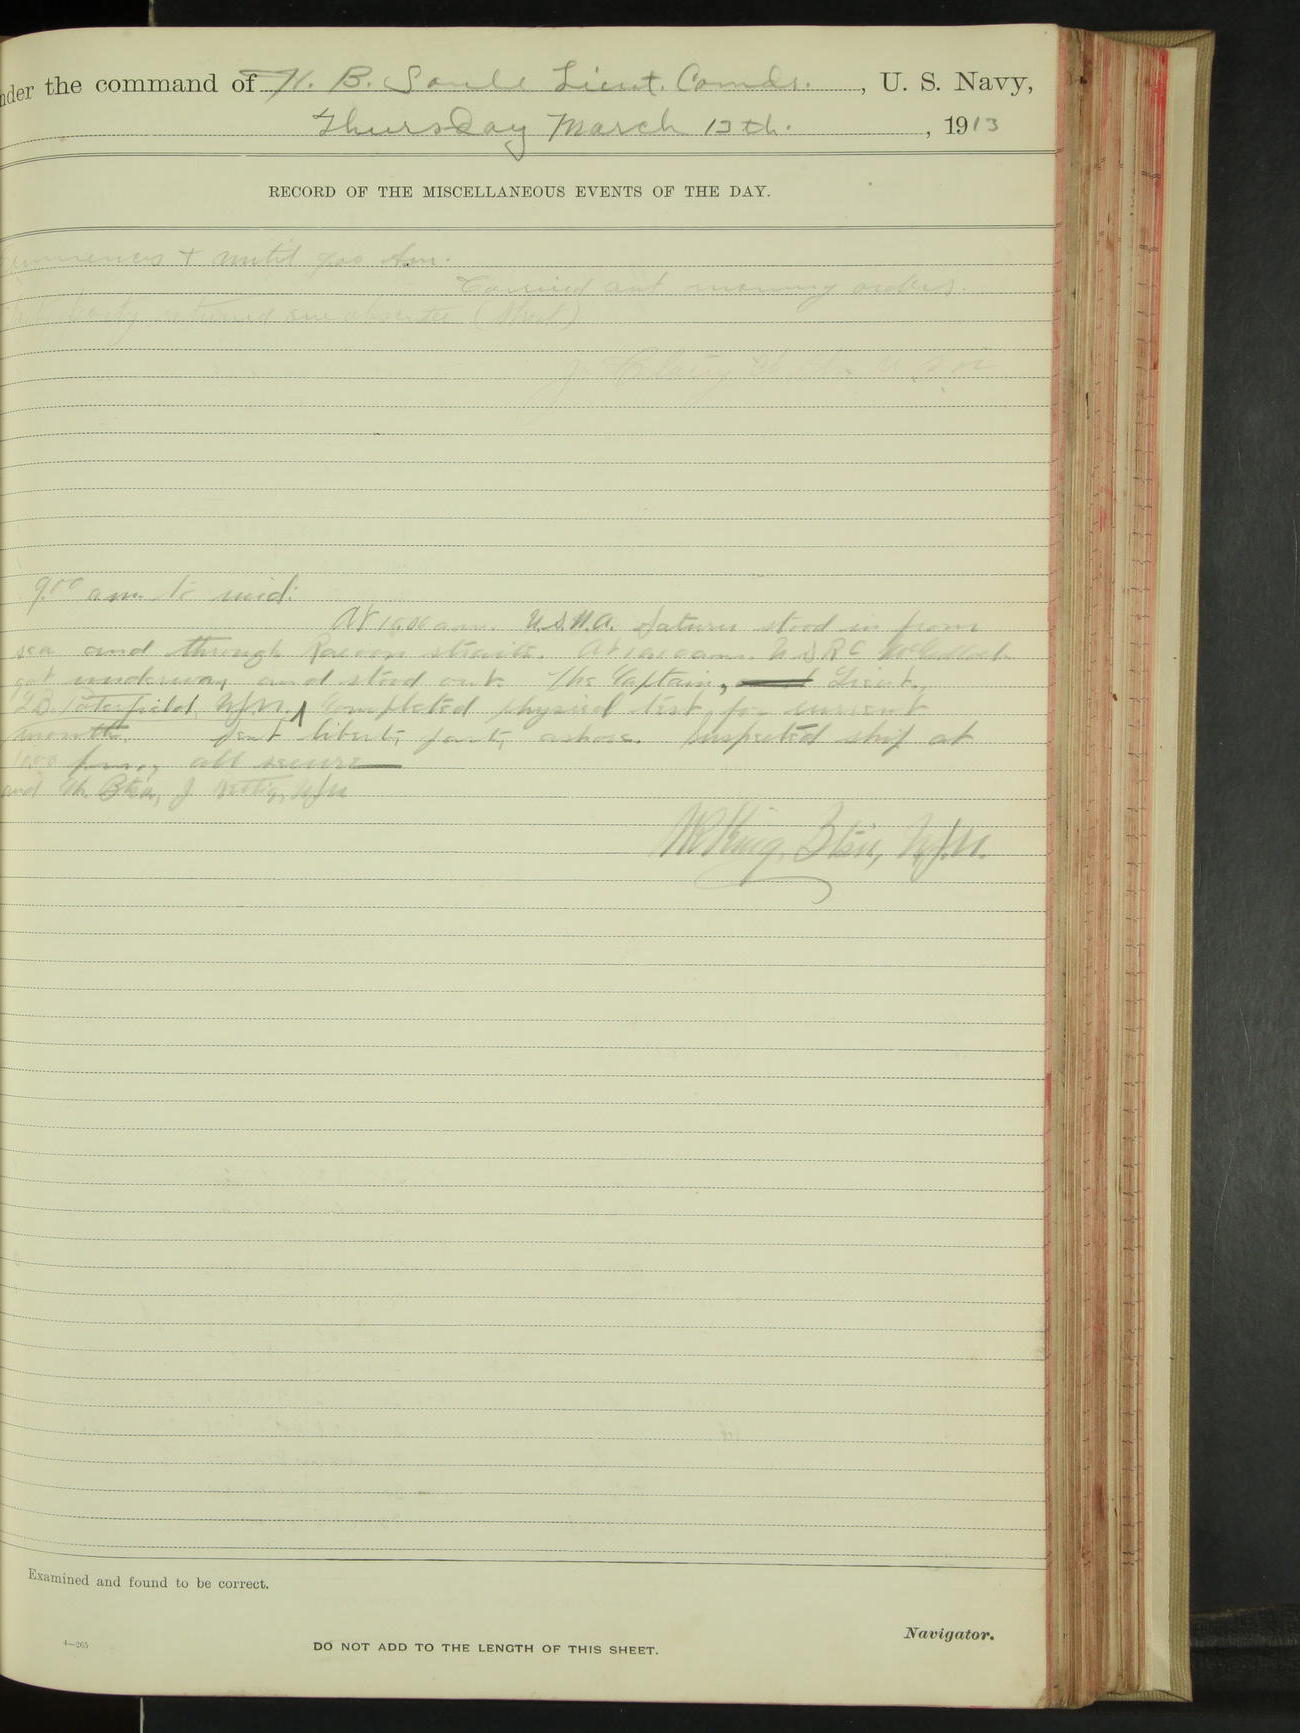 under the command of H. B. Soule Lieut. Comdr., U. S. Navy,
Thursday March 13th., 1913
RECORD OF THE MISCELLANEOUS EVENTS OF THE DAY.
& until 9:00 Am.
Carried out morning orders.
party returned one absentee
9.00 am to mid:
At 10.00 a.m. U.S.N.A. Saturn stood in from
sea and through Racoon straits. At a.m. U S R C McCulloch
got underway and stood out. The Captain, Lieut.
Completed physical test for current
month. Sent liberty party ashore. Inspected ship at
10.00 p.m., all secure
and Ch. Btsn, J
W King, Btsn, U.S.N.
Examined and found to be correct.
Navigator.
4—265
DO NOT ADD TO THE LENGTH OF THIS SHEET.